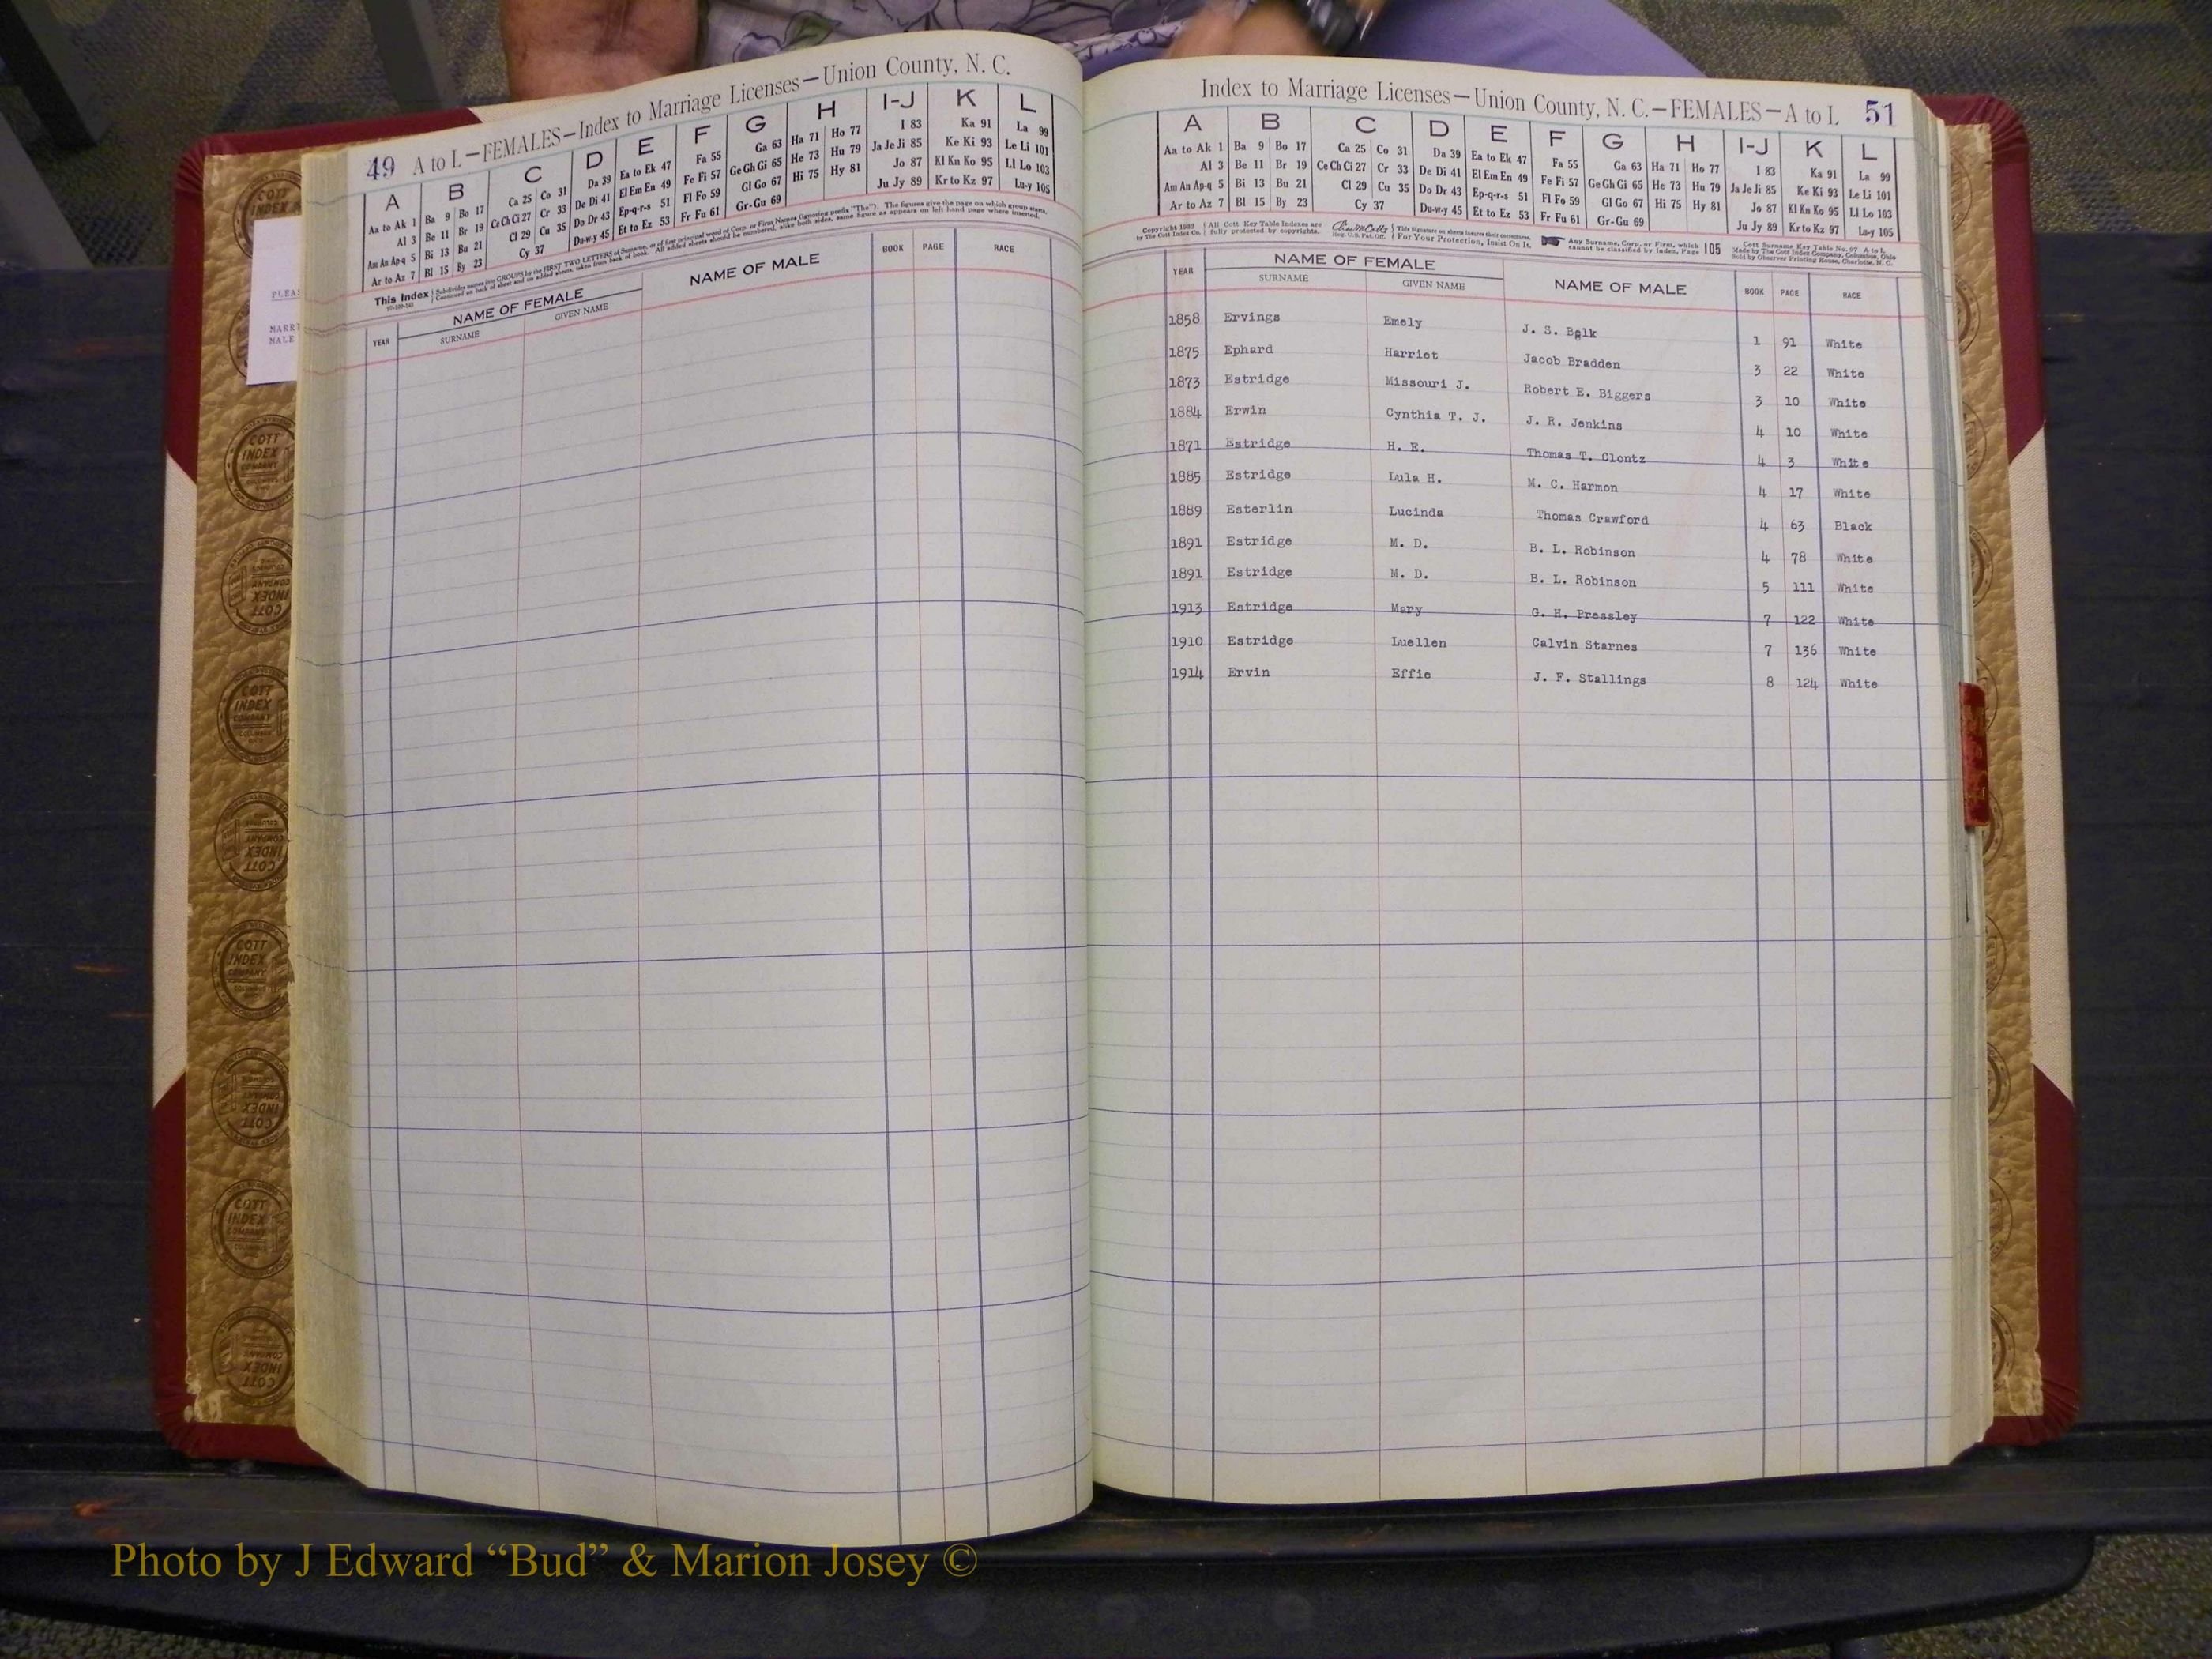 49 A to L—FEMALES—Index to Marriage Licenses—Union County, N. C.
A B C D E F G H I-J K L
Aa to Ak 1 Ba 9 Bo 17 Ca 25 Co 31 Da 39 Ea to Ek 47 Fa 55 Ga 63 Ha 71 Ho 77 I 83 Ka 91 La 99
Al 3 Be 11 Br 19 Ce Ch Ci 27 Cr 33 De Di 41 El Em En 49 Fe Fi 57 Ge Gh Gi 65 He 73 Hu 79 Ja Je Ji 85 Ke Ki 93 Le Li 101
Am An Ap-q 5 Bi 13 Bu 21 Cl 29 Cu 35 Do Dr 43 Ep-q-r-s 51 Fl Fo 59 Gl Go 67 Hi 75 Hy 81 Jo 87 Kl Kn Ko 95 Ll Lo 103
Ar to Az 7 Bl 15 By 23 Cy 37 Du-w-y 45 Et to Ez 53 Fr Fu 61 Gr-Gu 69 Ju Jy 89 Kr to Kz 97 Lu-y 105
This Index
YEAR NAME OF FEMALE NAME OF MALE BOOK PAGE RACE
SURNAME GIVEN NAME
PLEA
MARRI
MALE
Index to Marriage Licenses—Union County, N. C.—FEMALES—A to L 51
A B C D E F G H I-J K L
Aa to Ak 1 Ba 9 Bo 17 Ca 25 Co 31 Da 39 Ea to Ek 47 Fa 55 Ga 63 Ha 71 Ho 77 I 83 Ka 91 La 99
Al 3 Be 11 Br 19 Ce Ch Ci 27 Cr 33 De Di 41 El Em En 49 Fe Fi 57 Ge Gh Gi 65 He 73 Hu 79 Ja Je Ji 85 Ke Ki 93 Le Li 101
Am An Ap-q 5 Bi 13 Bu 21 Cl 29 Cu 35 Do Dr 43 Ep-q-r-s 51 Fl Fo 59 Gl Go 67 Hi 75 Hy 81 Jo 87 Kl Kn Ko 95 Ll Lo 103
Ar to Az 7 Bl 15 By 23 Cy 37 Du-w-y 45 Et to Ez 53 Fr Fu 61 Gr-Gu 69 Ju Jy 89 Kr to Kz 97 Lu-y 105
Copyright 1932 All Cott Key Table Indexes are
by The Cott Index Co. fully protected by copyrights.
For Your Protection, Insist On It.
Any Surname, Corp. or Firm, which
cannot be classified by Index, Page 105
Made by The Cott Index Company, Columbus, Ohio
Sold by Observer Printing House, Charlotte, N. C.
YEAR NAME OF FEMALE NAME OF MALE BOOK PAGE RACE
SURNAME GIVEN NAME
1858 Ervings Emely J. S. Belk 1 91 White
1875 Ephard Harriet Jacob Bradden 3 22 White
1873 Estridge Missouri J. Robert E. Biggers 3 10 White
1884 Erwin Cynthia T. J. J. R. Jenkins 4 10 White
1871 Estridge H. E. Thomas T. Clontz 4 3 White
1885 Estridge Lula H. M. C. Harmon 4 17 White
1889 Esterlin Lucinda Thomas Crawford 4 63 Black
1891 Estridge M. D. B. L. Robinson 4 78 White
1891 Estridge M. D. B. L. Robinson 5 111 White
1913 Estridge Mary G. H. Pressley 7 122 White
1910 Estridge Luellen Calvin Starnes 7 136 White
1914 Ervin Effie J. F. Stallings 8 124 White
COTT
INDEX
COMPANY
Photo by J Edward “Bud” & Marion Josey ©